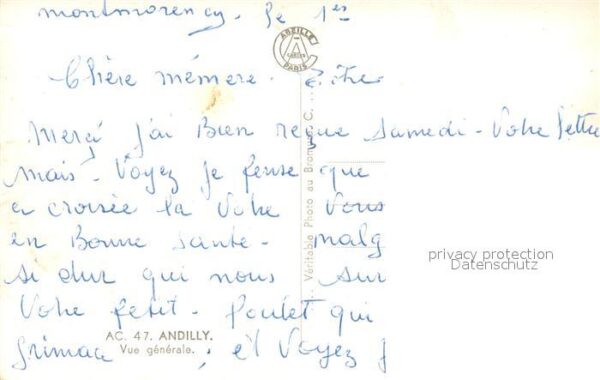 montmorency. le 1er
ABEILLE
CARTES
PARIS
Chère mémere.
Merçi j'ai Bien reçue Samedi - Votre lettre
mais - Voyez je pense que
a croisée la Votre Vous
en Bonne sante - malg
si dur qui nous sur
Votre petit - Poulet qui
grimace ; et Voyez j
AC. 47. ANDILLY.
Vue générale.
Véritable Photo au Bromure C.
privacy protection
Datenschutz